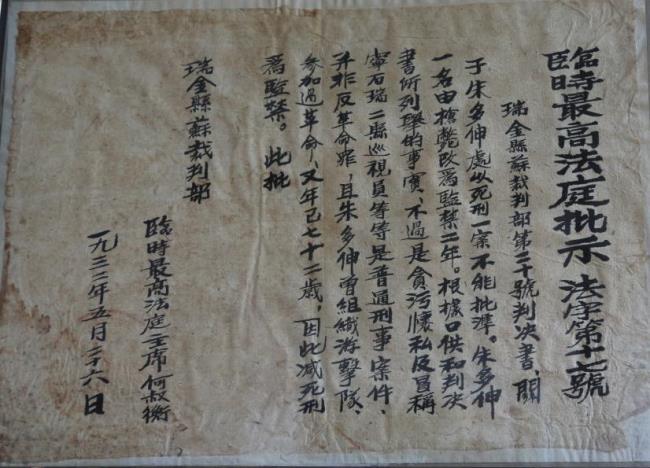 臨時最高法庭批示 法字第十七號
瑞金縣蘇裁判部第二十號判决書，関
于朱多伸處以死刑一案不能批準。朱多伸
一名由槍斃改爲監禁二年。根據口供和判决
書所列舉的事實，不過是貪污懷私及冒稱
寧石瑞三縣巡視員等等是普通刑事案件，
并非反革命罪，且朱多伸曾組織游擊隊，
参加過革命，又年已七十二歲，因此减死刑
爲監禁。此批
瑞金縣蘇裁判部
臨時最高法庭主席何叔衡
一九三二年五月二十六日